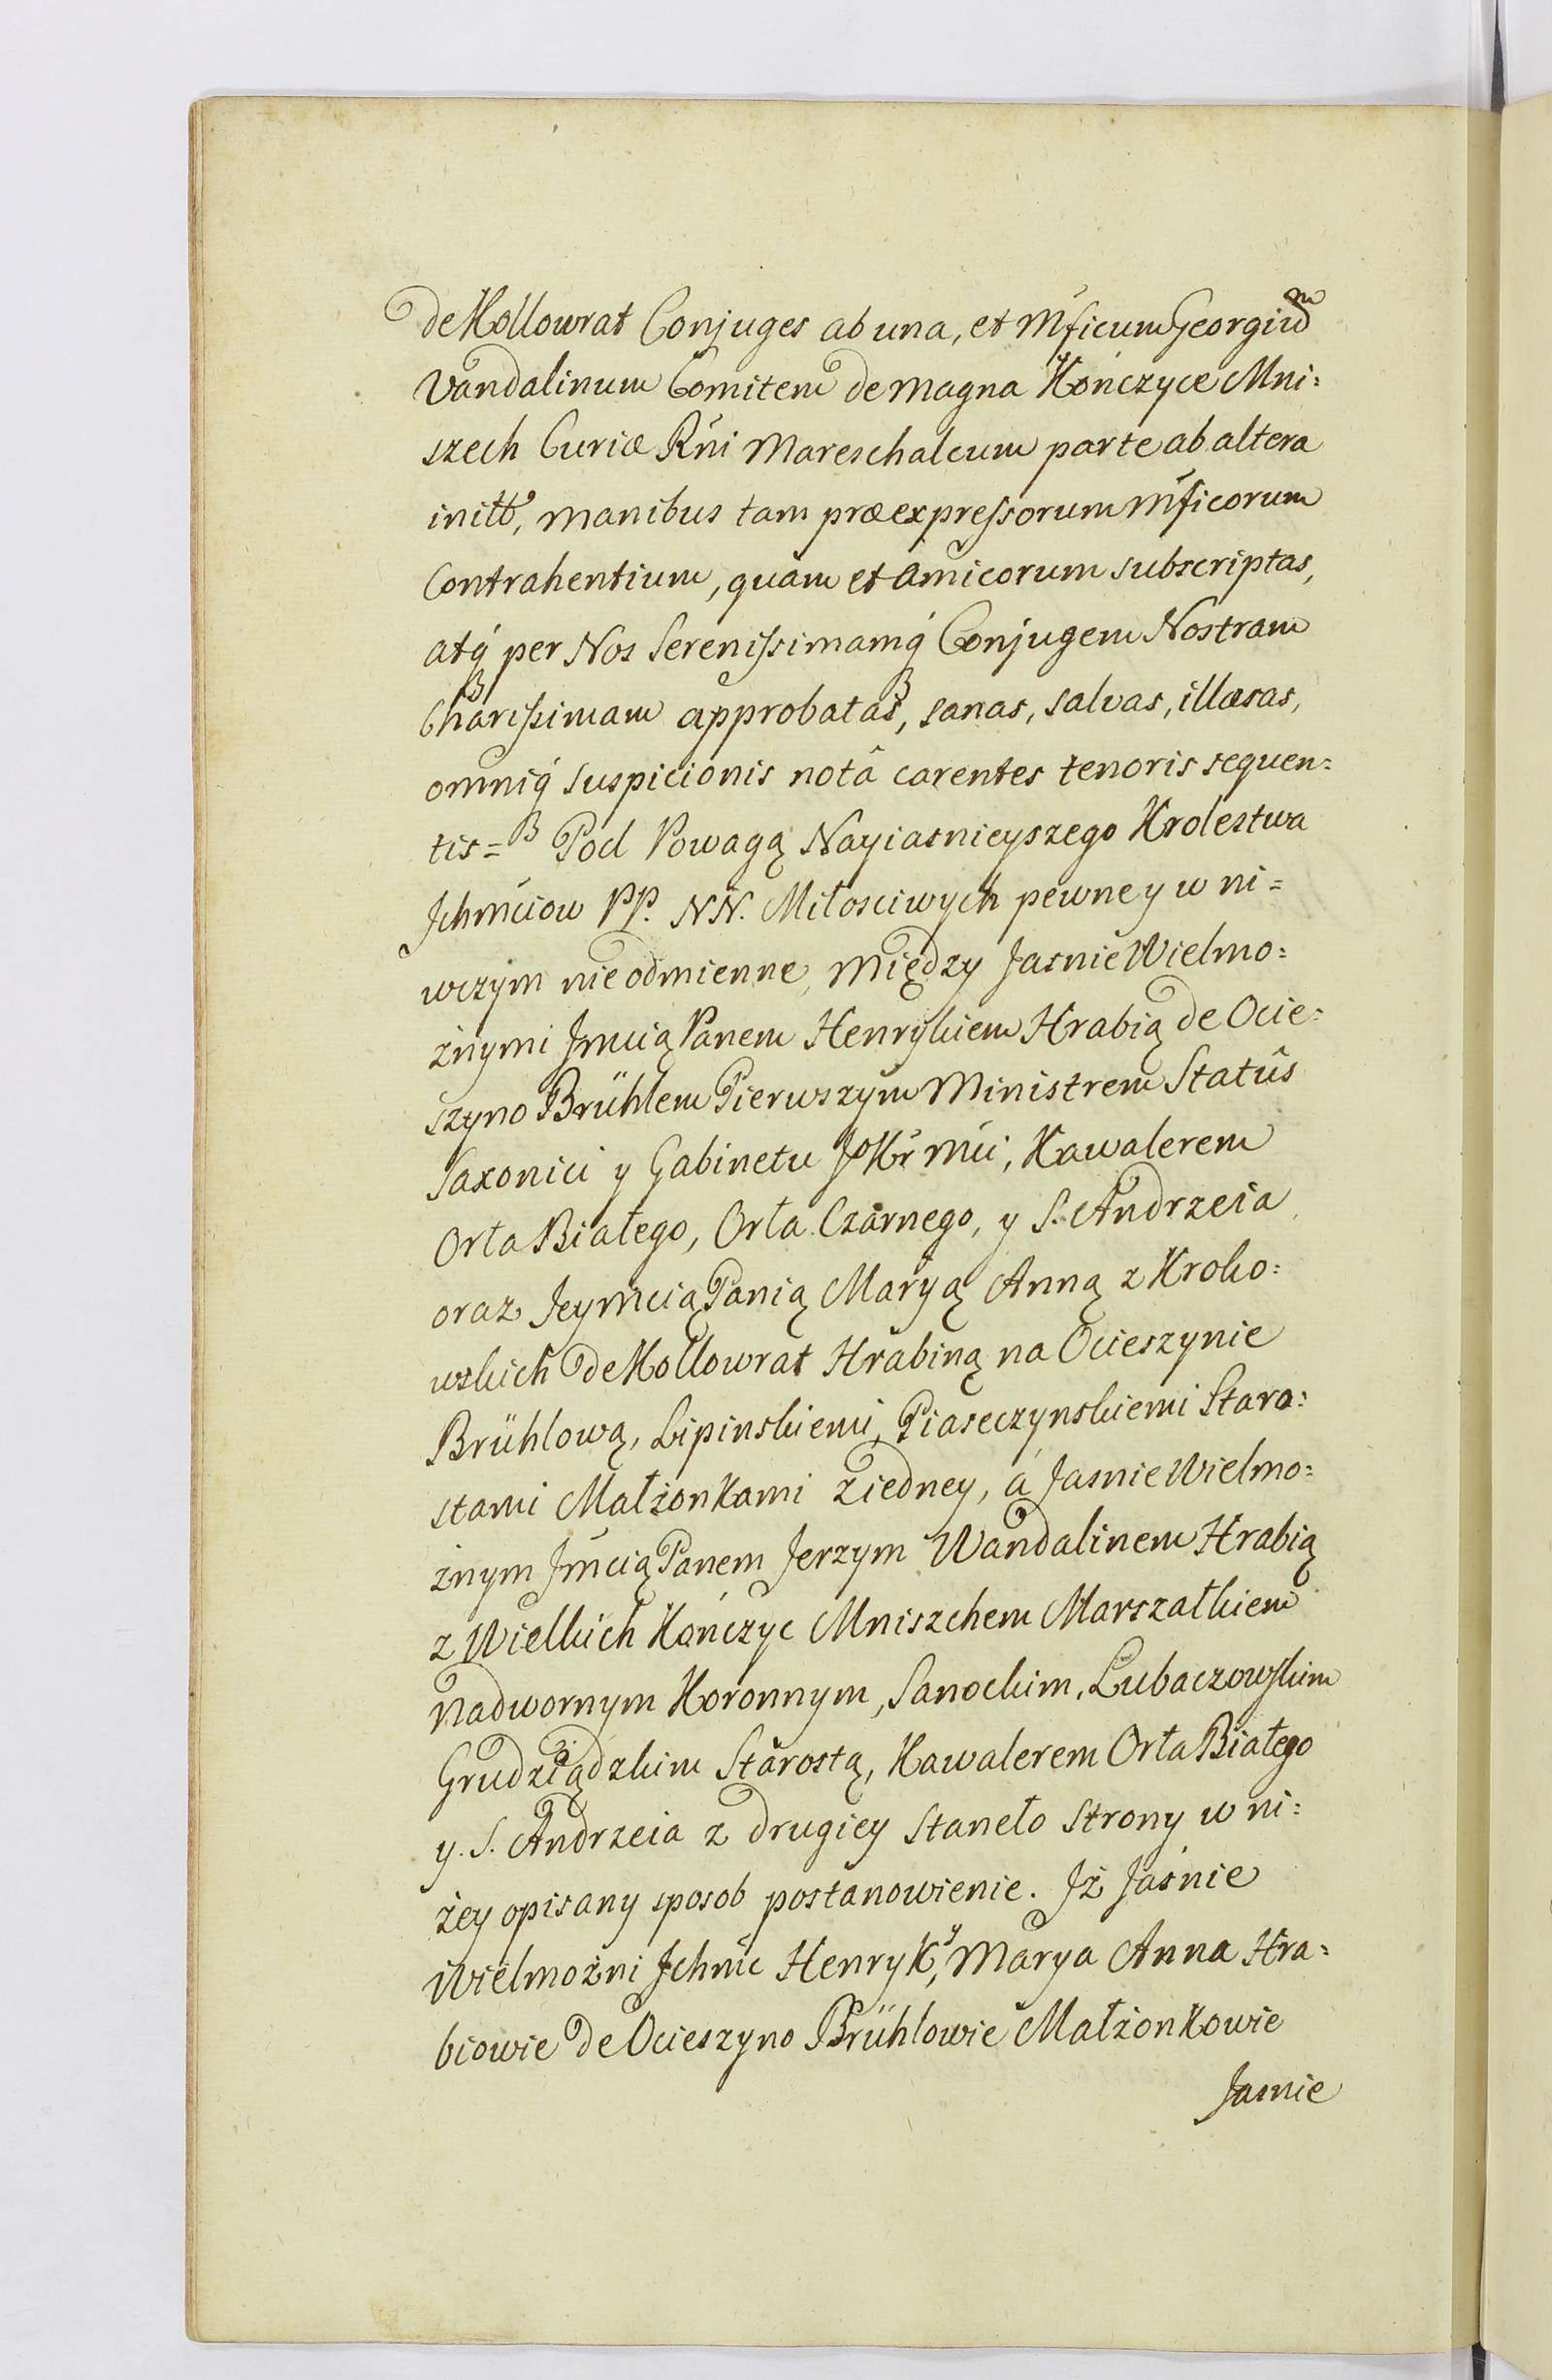 de Kollowrat Conjuges ab una, et Mficum Georgiũ
Vandalinum Comitem de magna Kończyce Mni=
szech Curiæ Rńi Mareschalcum parte ab altera
manibus tam præexpressorum Mficorum
Contrahentium, quàm et Amicorum subscriptas,
atq́ per Nos Serenissimamq́ Conjugem Nostram
Charissimam approbatas, sanas, salvas, illæsas,
omniq́ suspicionis notâ carentes tenoris sequen=
tis= Pod Powagą Nayiasnieyszego Krolestwa
Jchmćiow PP. NN. Miłosciwych pewne y w ni=
wczym nieodmienne, między Jasnie Wielmo=
żnymi Jmcią Panem Henrykiem Hrabią de Ocie=
szyno Brühlem Pierwszym Ministrem Statûs
Saxonici y Gabinetu JoKr̃ Mći, Kawalerem
Orła Białego, Orła Czarnego, y S. Andrzeia,
oraz Jeymcią Panią Maryą Anną z Kroko=
wskich de Kollowrat Hrabiną na Ocieszynie
Brühlową, Lipinskiemi, Piaseczynskiemi Staro=
stami Małżonkami z iedney, á Jasnie Wielmo=
żnym Jmcią Panem Jerzym Wandalinem Hrabią
z Wielkich Kończyc Mniszchem Marszałkiem
Nadwornym Koronnym, Sanockim, Lubaczowskim
Grudziądzkim Starostą, Kawalerem Orła Białego
y. S. Andrzeia z drugiey staneło strony w ni=
żey opisany sposob postanowienie. Jż Jaśnie
Wielmożni Jchmć Henryk, y Marya Anna Hra=
biowie de Ocieszyno Brühlowie Małżonkowie
Jasnie